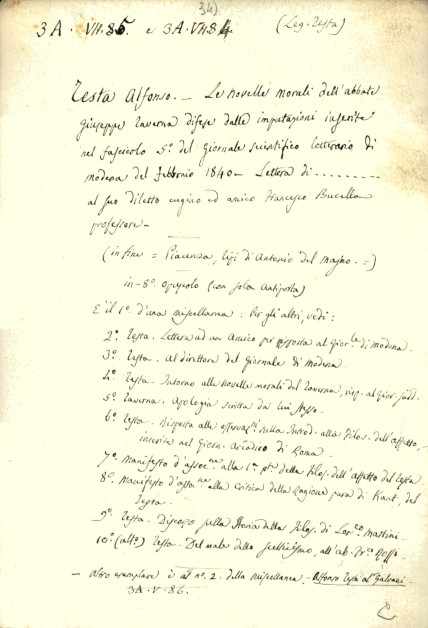 34)
3A. VII.85 e 3A.VII.84 (Leg. Testa)
Testa Alfonso. - Le novelle morali dell'abbate
Giuseppe Taverna difese dalle imputazioni inserite
nel fascicolo 5° del giornale scientifico letterario di
Modena del Febbraio 1840 - Lettera di ........
al suo diletto cugino ed amico Francesco Bucella
professore -
(in fine = Piacenza, tipi di Antonio del Majno. =)
in-8° opuscolo (con sola antiporta)
E' il 1° d'una miscellanea - Per gli altri, vedi:
2° Testa. Lettera ad un Amico per risposta al Gior.le di Modena.
3° Testa. Al direttore del Giornale di Modena
4° Testa. Intorno alle novelle morali del Taverna, risp. al Gior. sudd.
5° Taverna. Apologia scritta da lui stesso.
6° Testa. Risposta alle osservaz.ni sulla Introd. alla Filos. dell'affetto,
inserita nel Giorn. Arcadico di Roma.
7° Manifesto d'assoc.ne alla 1a pte della Filos. dell'affetto del Testa
8° Manifesto d'assoc.ne alla Critica della Ragion pura di Kant, del
Testa.
9° Testa. Discorso sulla Storia della Filos. di Lor.zo Martini.
10° (alt°) Testa. Del male dello scetticismo, all'ab.
- Altro esemplare è al n° 2 della miscellanea - Alfonso Testa al
3A.V.86.